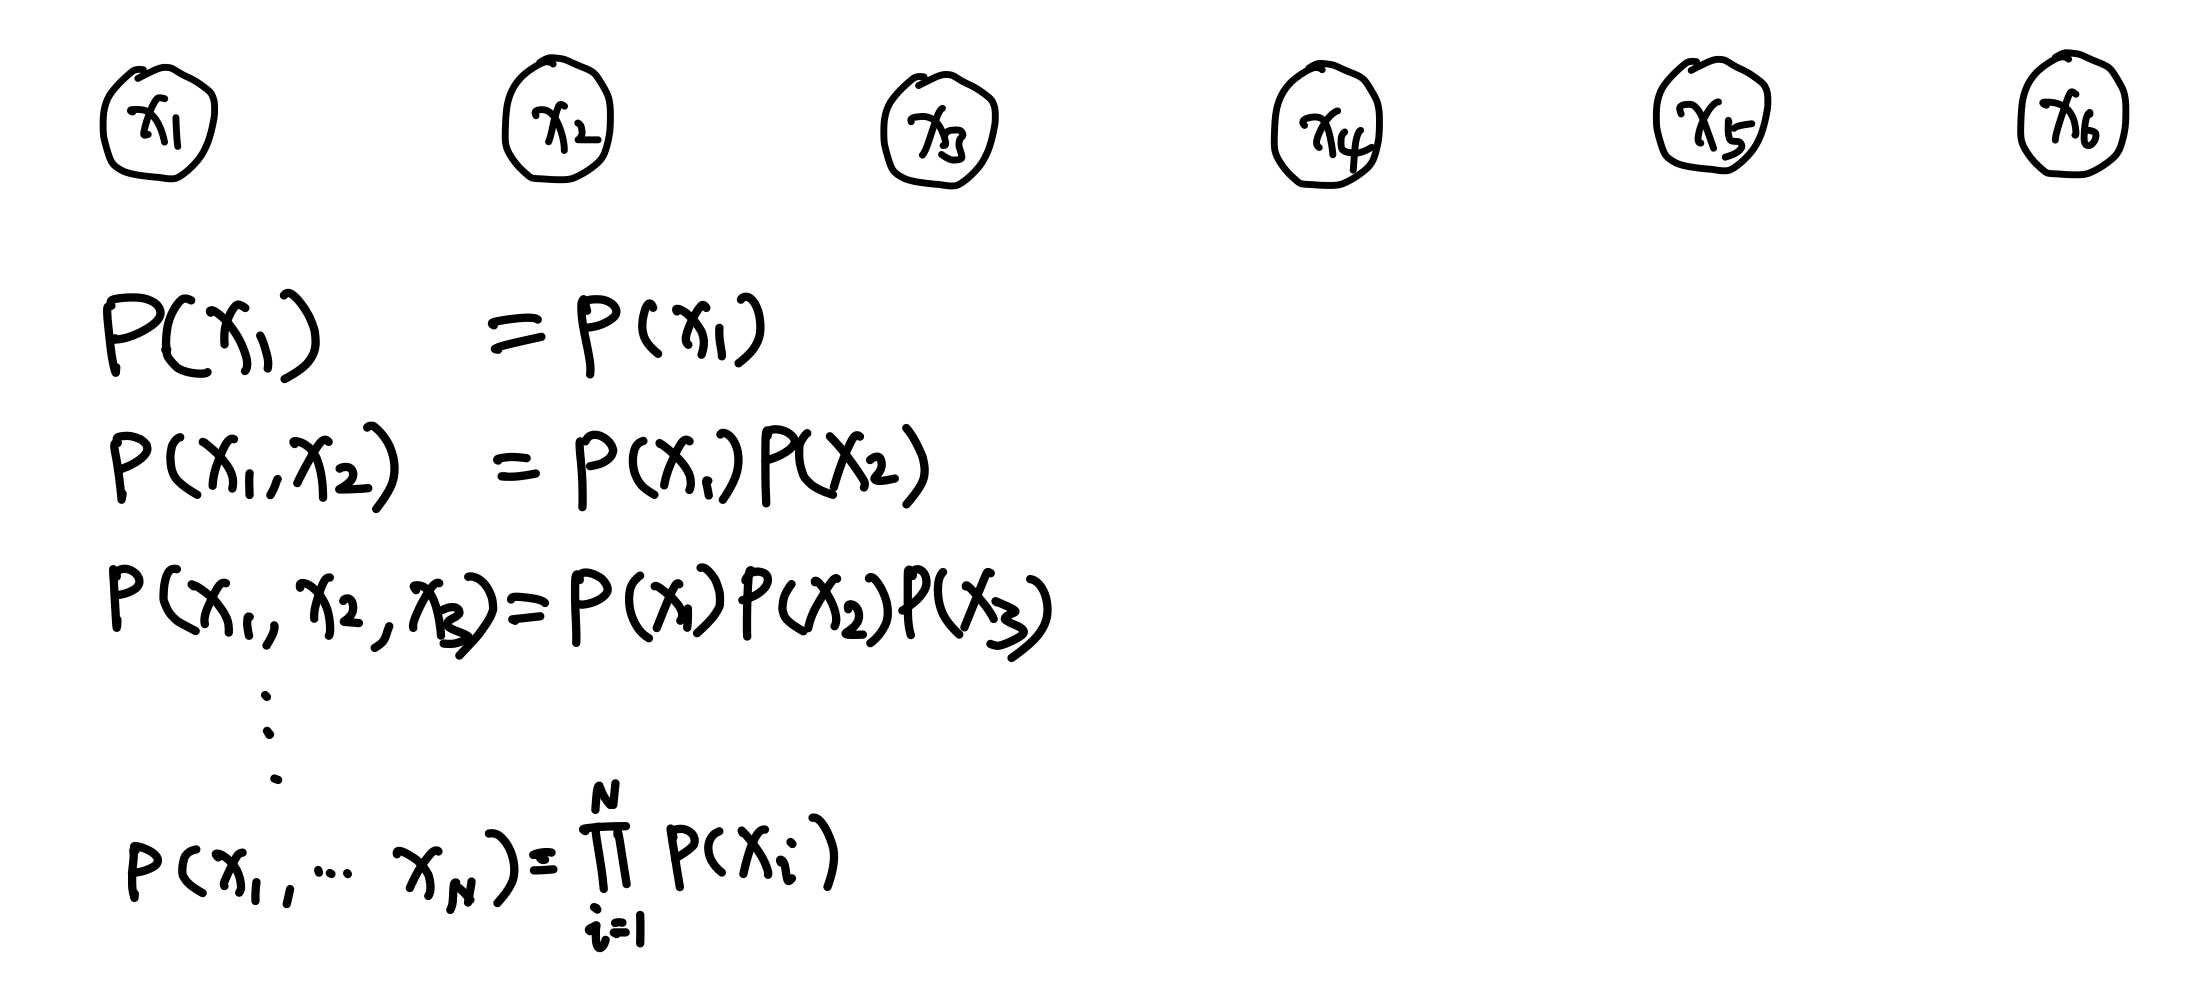 x₁ x₂ x₃ x₄ x₅ x₆
P(x₁) = P(x₁)
P(x₁, x₂) = P(x₁)P(x₂)
P(x₁, x₂, x₃) = P(x₁)P(x₂)P(x₃)
⋮
P(x₁, ⋯ x_N) = ∏_{i=1}^{N} P(x_i)